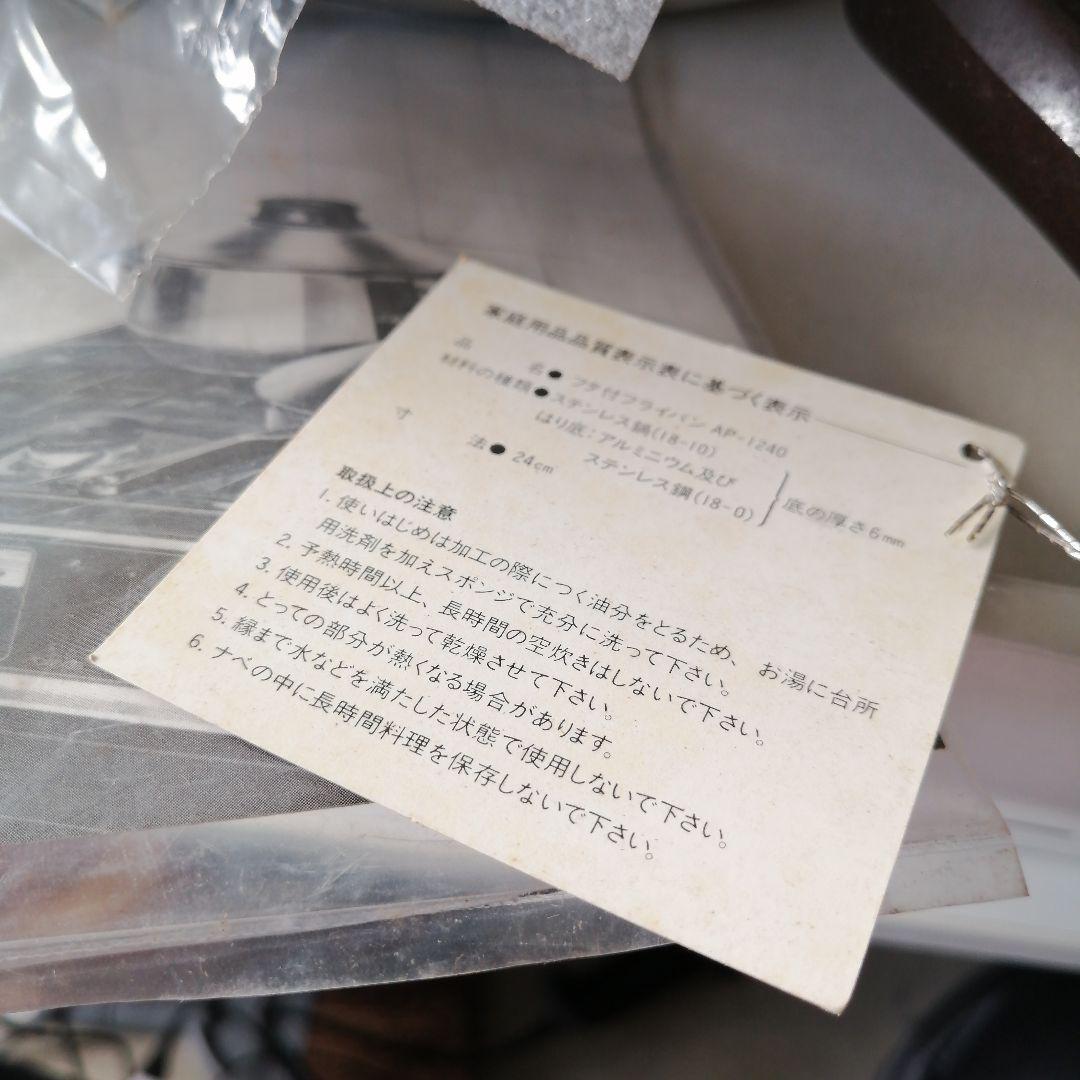 家庭用品品質表示表に基づく表示
品名●フタ付フライパン AP-1240
材料の種類●ステンレス鍋(18-10)
はり底:アルミニウム及び
ステンレス鋼(18-0)
底の厚さ6mm
寸法●24cm
取扱上の注意
1. 使いはじめは加工の際につく油分をとるため、お湯に台所
用洗剤を加えスポンジで充分に洗って下さい。
2. 予熱時間以上、長時間の空炊きはしないで下さい。
3. 使用後はよく洗って乾燥させて下さい。
4. とっての部分が熱くなる場合があります。
5. 縁まで水などを満たした状態で使用しないで下さい。
6. ナベの中に長時間料理を保存しないで下さい。